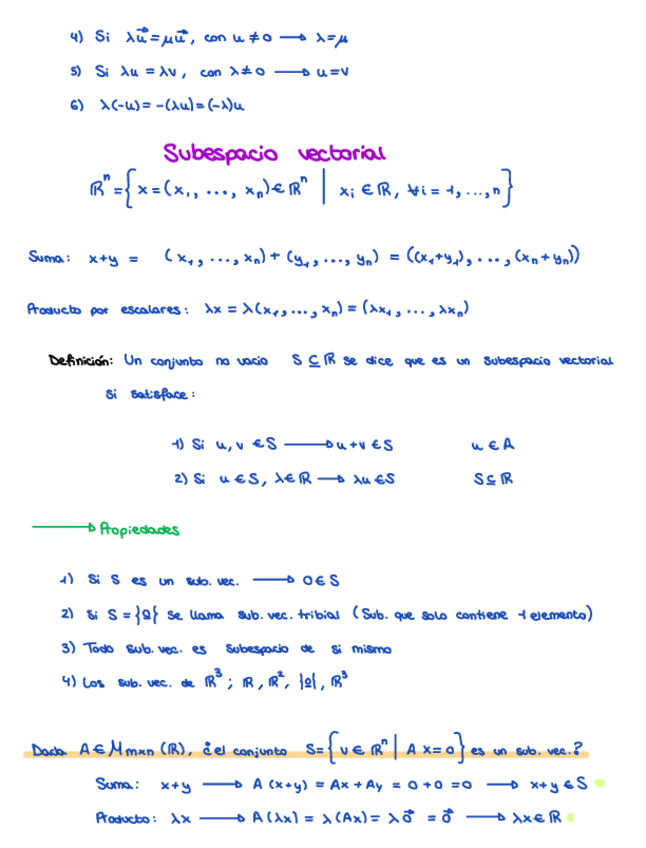 4) Si λu⃗=μu⃗, con u≠0 → λ=μ
5) Si λu=λv, con λ≠0 → u=v
6) λ(-u)=-(λu)=(-λ)u
Subespacio vectorial
ℝⁿ={x=(x₁, ..., xₙ)∈ℝⁿ | xᵢ∈ℝ, ∀i=1,...,n}
Suma: x+y = (x₁, ..., xₙ)+(y₁, ..., yₙ) = ((x₁+y₁), ..., (xₙ+yₙ))
Producto por escalares: λx = λ(x₁, ..., xₙ) = (λx₁, ..., λxₙ)
Definición: Un conjunto no vacio S⊆ℝ se dice que es un subespacio vectorial
si satisface:
1) Si u, v ∈S → u+v∈S u∈A
2) Si u∈S, λ∈ℝ → λu∈S S⊆ℝ
→ Propiedades
1) Si S es un sub. vec. → 0∈S
2) Si S={0} se llama sub. vec. tribial (Sub. que solo contiene 1 elemento)
3) Todo sub. vec. es subespacio de si mismo
4) Los sub. vec. de ℝ³; ℝ, ℝ², {0}, ℝ³
Dada A∈Mmxn(ℝ), ¿el conjunto S={v∈ℝⁿ | Ax=0} es un sub. vec.?
Suma: x+y → A(x+y) = Ax+Ay = 0+0 =0 → x+y∈S
Producto: λx → A(λx)= λ(Ax)= λ0⃗ =0⃗ → λx∈ℝ